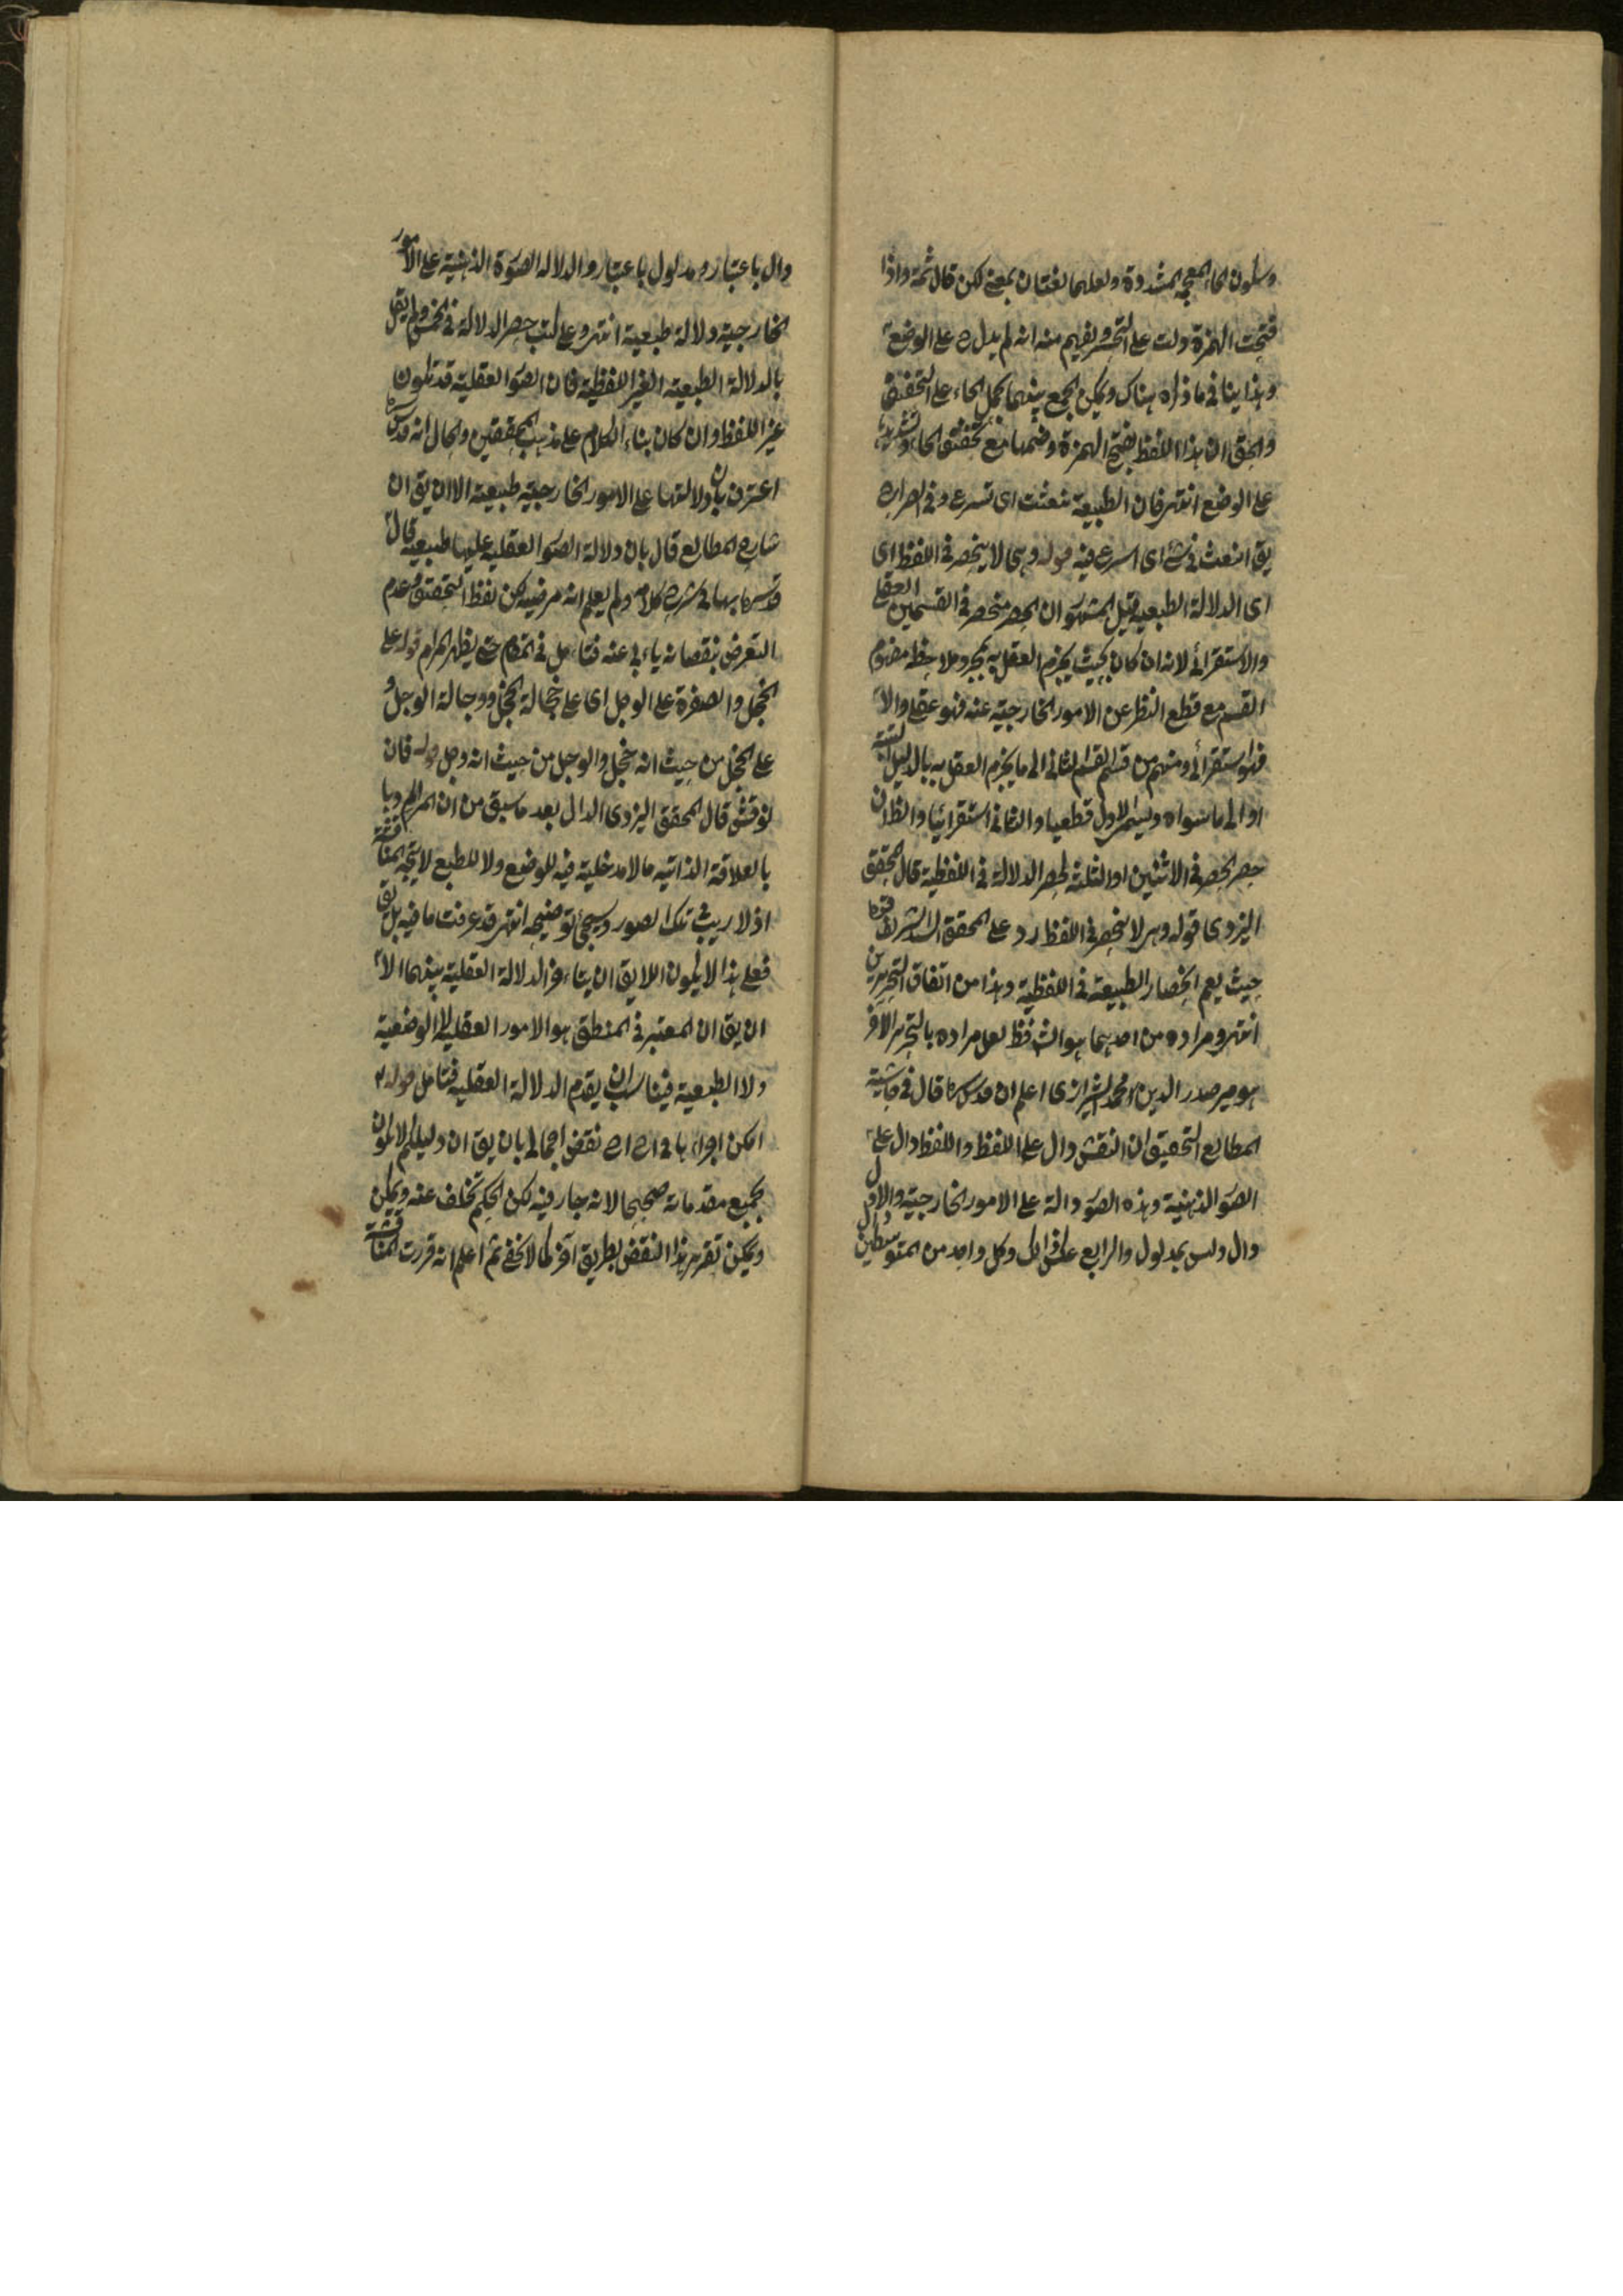 وسكون الحاء المعجمة المشددة ولعلهما لغتان بمعنى لكن قال ثمة واذا
فتحت الهمزة دلت على التحسر ويفهم منه انه لم يدل ح على الوضع
وهذا ينافي ما ذكره هناك ويمكن الجمع بينهما بحمل الحاء على التخفيف
والحق ان هذا اللفظ بفتح الهمزة وضمها مع تخفيف الحاء وتشديدها
على الوضع انتهى فان الطبيعة تنعث اى تسرع وفي الصراح
يق انبعث في شئ اى اسرع فيه قوله وهى لا ينحصر في اللفظ اى
اى الدلالة الطبعية قيل المشهور ان الحصر منحصر في القسمين العقلي
والاستقرائي لانه ان كان بحيث يجزم العقل به بمجرد ملاحظة مفهوم
القسم مع قطع النظر عن الامور الخارجية عنه فهو عقلي والا
فهو استقرائي ومنهم من قسم القسم الثاني الى ما يجزم العقل به بالدليل
او الى ما سواه ويسمى الاول قطعيا والثاني استقرائيا والظ ان
حصر الحصر في الاثنين او الثلثة كحصر الدلالة في اللفظية قال المحقق
اليزدى قوله وهى لا ينحصر في اللفظ رد على المحقق الشريف
حيث يعم انحصار الطبيعة في اللفظية وهذا من اتفاق التحريرين
انتهى ومراده من احدهما هو الش فظ لعل مراده بالتحرير الآخر
هو مير صدر الدين محمد الشيرازى اعلم ان قدس سره قال في حاشية
المطالع التحقيق ان النقش دال على اللفظ واللفظ دال على
الصور الذهنية وهذه الصور دالة على الامور الخارجية والاول
دال وليس بمدلول والرابع على كل واحد من المتوسطين
دال باعتبار ومدلول باعتبار والدلالة الصورة الذهنية على الامور
الخارجية دلالة طبعية انتهى وحصر الدلالة في الخمس ولم يقل
بالدلالة الطبعية الغير اللفظية فان الصور العقلية قد تكون
غير اللفظ وان كان بناء الكلام على مذهب المحققين والحال انه قدس سره
اعترف بان دلالتها على الامور الخارجية طبيعية الا ان يق ان
شارح المطالع قال بان دلالة الصور العقلية عليها طبيعية قال
قدس سره بها في شرح كلامه ولم يعلم انه مرضيه لكن لفظ التحقيق وعدم
التعرض بنقصانه ياءبى عنه فتامل في المقام حتى يظهر المرام قوله على
الخجل والصفرة على الوجل اى على خجالة الخجل ووجالة الوجل و
على الخجل من حيث انه خجل والوجل من حيث انه وجل قوله فان
نوقش قال المحقق اليزدى الدال بعد ما سبق من ان المراد
بالعلاقة الذاتية ما لا مدخلية فيه للوضع ولا للطبع لا يتجه المناقشة
اذ لا ريب في تلك الصور وسيجئ توضيحه انتهى قد عرفت ما فيه بل يق
فعلى هذا لا يكون اللايق ان يتاءخر الدلالة العقلية بينهما الا
ان يق ان المعتبر في المنطق هو الامور العقلية لا الوضعية
ولا الطبعية فيناسب ان يقدم الدلالة العقلية فتامل قوله
امكن اجراءها نقض اجمالي بان يق ان دليلكم لا يكون
بجميع مقدماته صحيحا لانه جار فيه لكن الحكم تخلف عنه ويمكن
ويمكن تقرير هذا النقض بطريق آخر كما لا يخفى ثم اعلم انه قررت المناقشة